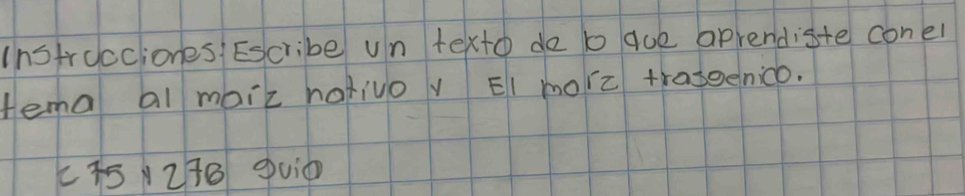 Instrucciones: Escribe un texto de lo que aprendiste con el
tema al maiz nativo y El maiz trasgenico.
c 75 y 276 guia